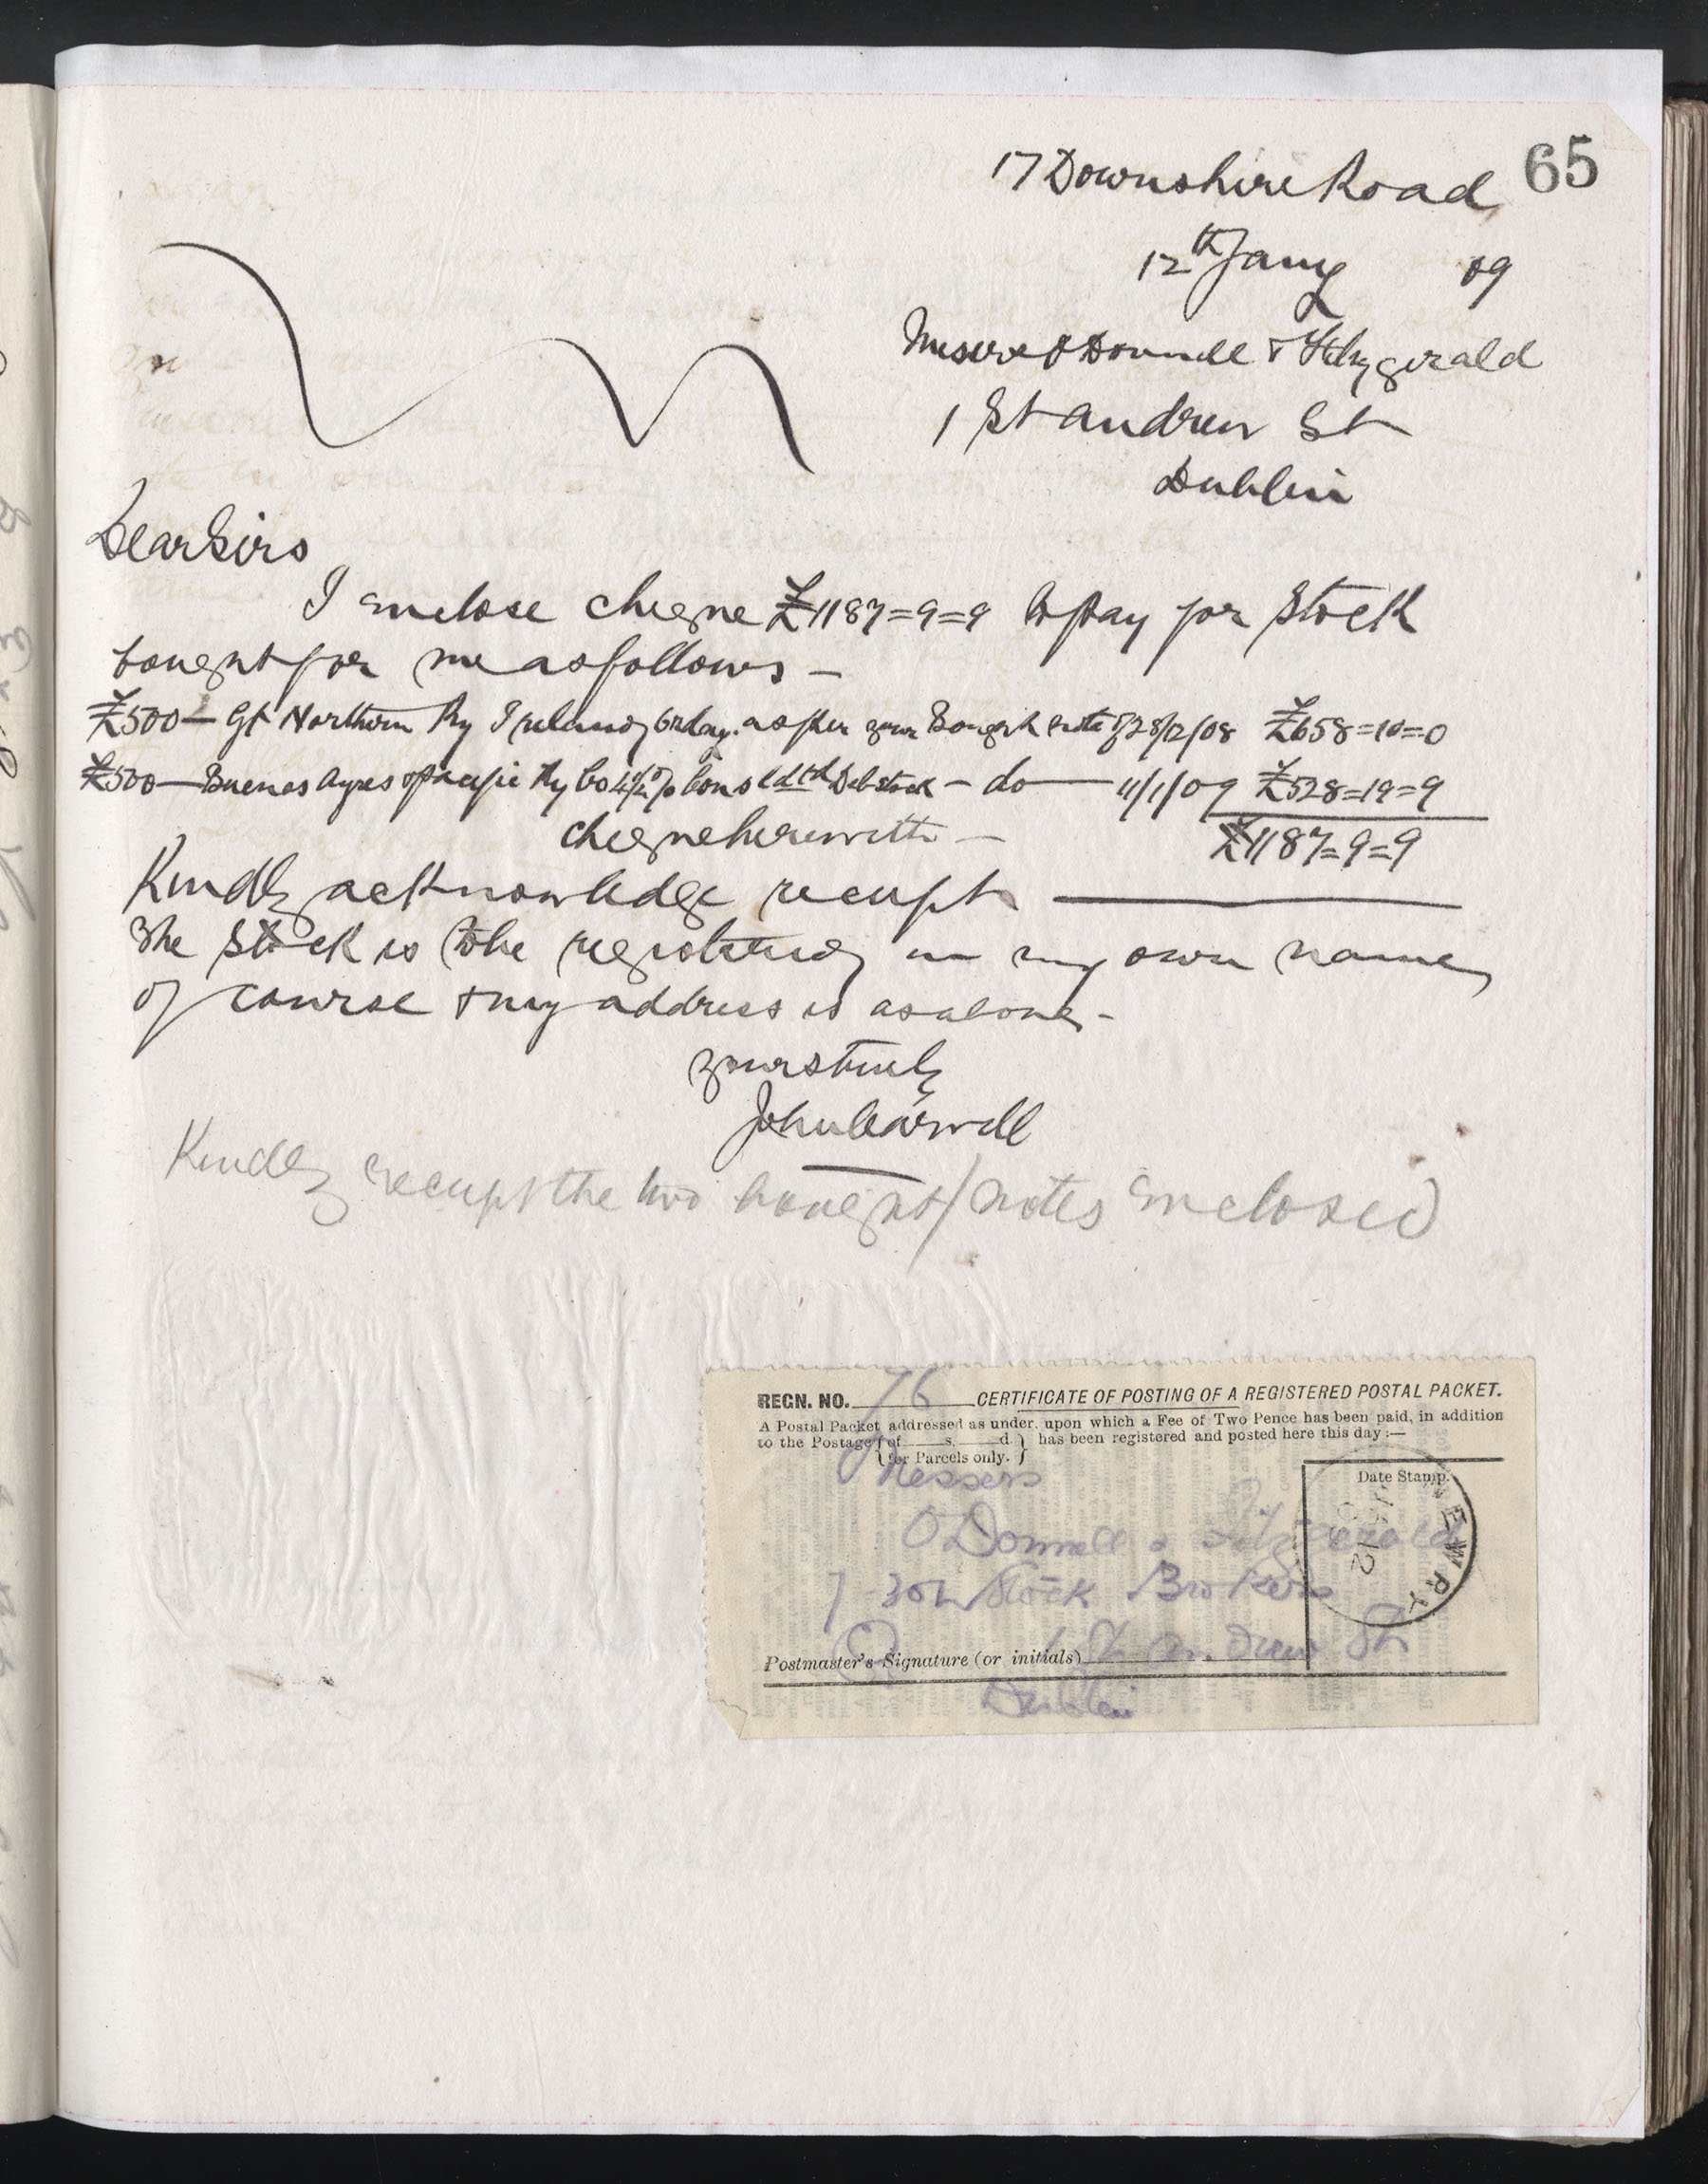 65
17 Downshire Road
12th Jany 09
Messrs O'Donnell & Fitzgerald
1 St Andrew St
Dublin
Dear Sirs
I enclose cheque £1187=9=9 to pay for Stock
bought for me as follows —
£500— Gt Northern Ry Ireland, Orday. as per your Bought note of 28/12/08 £658=10=0
£500— Buenos Ayres & Pacific Ry Co 4½% Consldtd Deb Stock — do — 11/1/09 £528=19=9
cheque herewith — £1187=9=9
Kindly acknowledge receipt
The Stock is to be registered in my own name,
of course & my address is as above -
yours truly
John
Kindly receipt the two bought/notes enclosed
REGN. NO. 76 CERTIFICATE OF POSTING OF A REGISTERED POSTAL PACKET.
A Postal Packet addressed as under, upon which a Fee of Two Pence has been paid, in addition
to the Postage { of s. d. } has been registered and posted here this day :—
{ for Parcels only. }
Messers
Date Stamp.
NEWRY
12
O'Donnell & Fitzgerald
Stock Brokers
1 St Andrew St
Postmaster's Signature (or initials)
Dublin